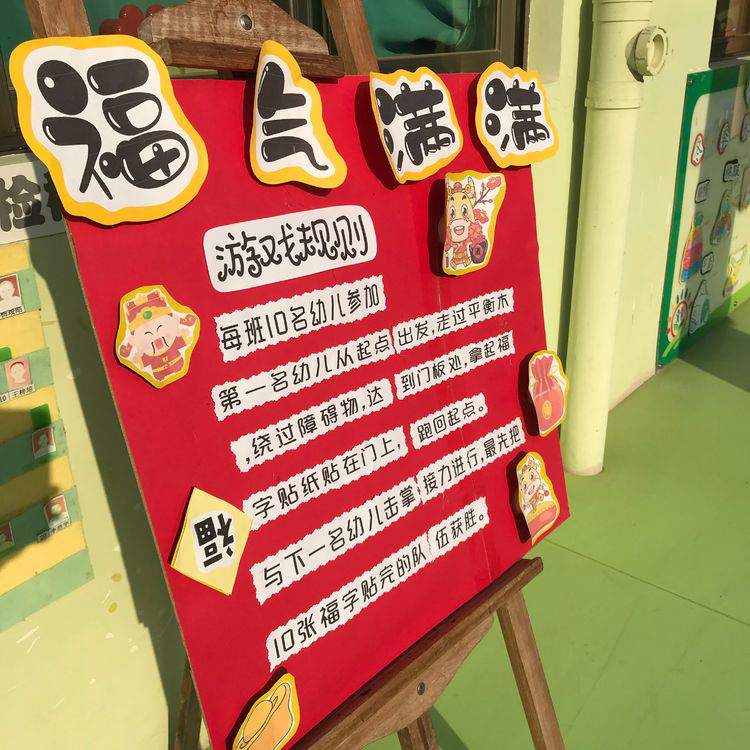 福气满满
游戏规则
每班10名幼儿参加
第一名幼儿从起点出发,走过平衡木
,绕过障碍物,达到门板处,拿起福
字贴纸贴在门上,跑回起点。
与下一名幼儿击掌接力进行,最先把
10张福字贴完的队伍获胜。
福
检